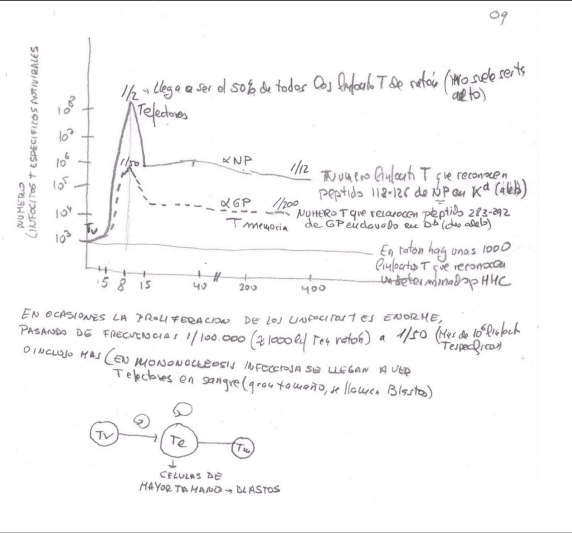 09
NUMERO
LINFOCITOS T ESPECIFICOS ANTIVIRALES
1/2 → Llega a ser el 50% de todos los linfocitos T de ratón (no suele ser tan
alto)
Tefectores
10⁸
10⁷
10⁶
10⁵
10⁴
10³
Tv
1/50
αNP
1/12
Numero linfocit T que reconocen
peptido 118-126 de NP en Kᵈ (alelo)
αGP
1/200
T memoria
NUMERO T que reconocen péptido 283-292
de GP enclavado en Dᵇ (otro alelo)
En raton hay unas 1000
linfocitos T que reconocen
un determinado p MHC
5 8 15 40 // 200 400
EN OCASIONES LA PROLIFERACION DE LOS LINFOCITOS T ES ENORME,
PASANDO DE FRECUENCIAS 1/100.000 (≈1000 en ratón) a 1/50 (Mas de 10⁶ linfocit
T especificos)
O INCLUSO MAS (EN MONONUCLEOSIS INFECCIOSA SE LLEGAN A VER
Tefectores en sangre (gran tamaño, se llaman Blastos)
Tv
Te
Tm
CELULAS DE
MAYOR TAMAÑO → BLASTOS